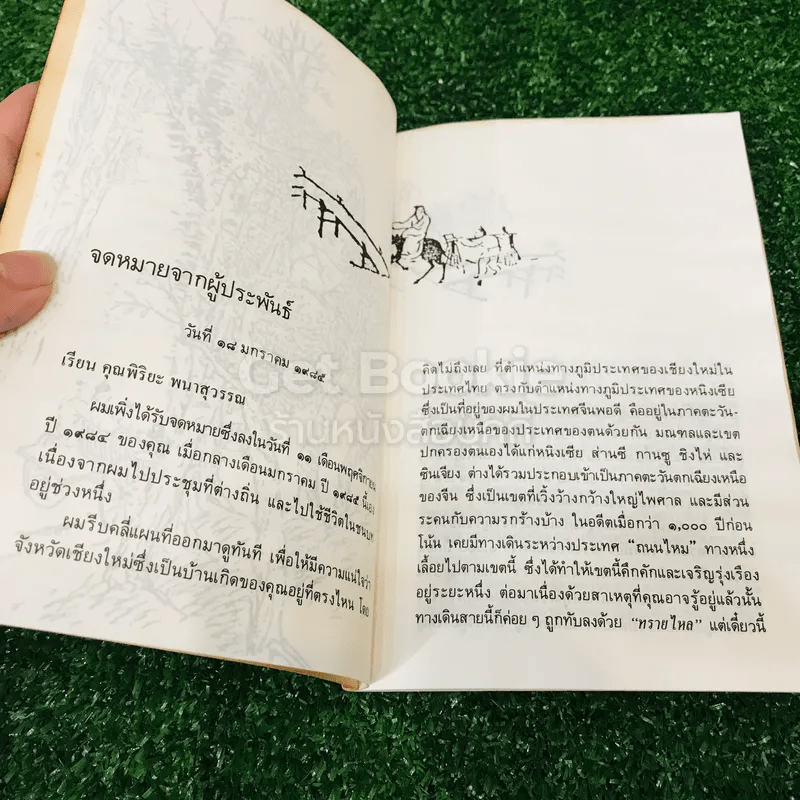 จดหมายจากผู้ประพันธ์
วันที่ ๑๘ มกราคม ๑๙๘๕
เรียน คุณพิริยะ พนาสุวรรณ
ผมเพิ่งได้รับจดหมายซึ่งลงในวันที่ ๑๑ เดือนพฤศจิกายน
ปี ๑๙๘๔ ของคุณ เมื่อกลางเดือนมกราคม ปี ๑๙๘๕ นี้เอง
เนื่องจากผมไปประชุมที่ต่างถิ่น และไปใช้ชีวิตในชนบท
อยู่ช่วงหนึ่ง
ผมรีบคลี่แผนที่ออกมาดูทันที เพื่อให้มีความแน่ใจว่า
จังหวัดเชียงใหม่ซึ่งเป็นบ้านเกิดของคุณอยู่ที่ตรงไหน โดย
คิดไม่ถึงเลย ที่ตำแหน่งทางภูมิประเทศของเชียงใหม่ใน
ประเทศไทย ตรงกับตำแหน่งทางภูมิประเทศของหนิงเซีย
ซึ่งเป็นที่อยู่ของผมในประเทศจีนพอดี คืออยู่ในภาคตะวัน-
ตกเฉียงเหนือของประเทศของตนด้วยกัน มณฑลและเขต
ปกครองตนเองได้แก่หนิงเซีย ส่านซี กานซู ชิงไห่ และ
ซินเจียง ต่างได้รวมประกอบเข้าเป็นภาคตะวันตกเฉียงเหนือ
ของจีน ซึ่งเป็นเขตที่เวิ้งว้างกว้างใหญ่ไพศาล และมีส่วน
ระคนกับความรกร้างบ้าง ในอดีตเมื่อกว่า ๑,๐๐๐ ปีก่อน
โน้น เคยมีทางเดินระหว่างประเทศ “ถนนไหม” ทางหนึ่ง
เลื้อยไปตามเขตนี้ ซึ่งได้ทำให้เขตนี้คึกคักและเจริญรุ่งเรือง
อยู่ระยะหนึ่ง ต่อมาเนื่องด้วยสาเหตุที่คุณอาจรู้อยู่แล้วนั้น
ทางเดินสายนี้ก็ค่อย ๆ ถูกทับลงด้วย “ทรายไหล” แต่เดี๋ยวนี้
Get Bookie